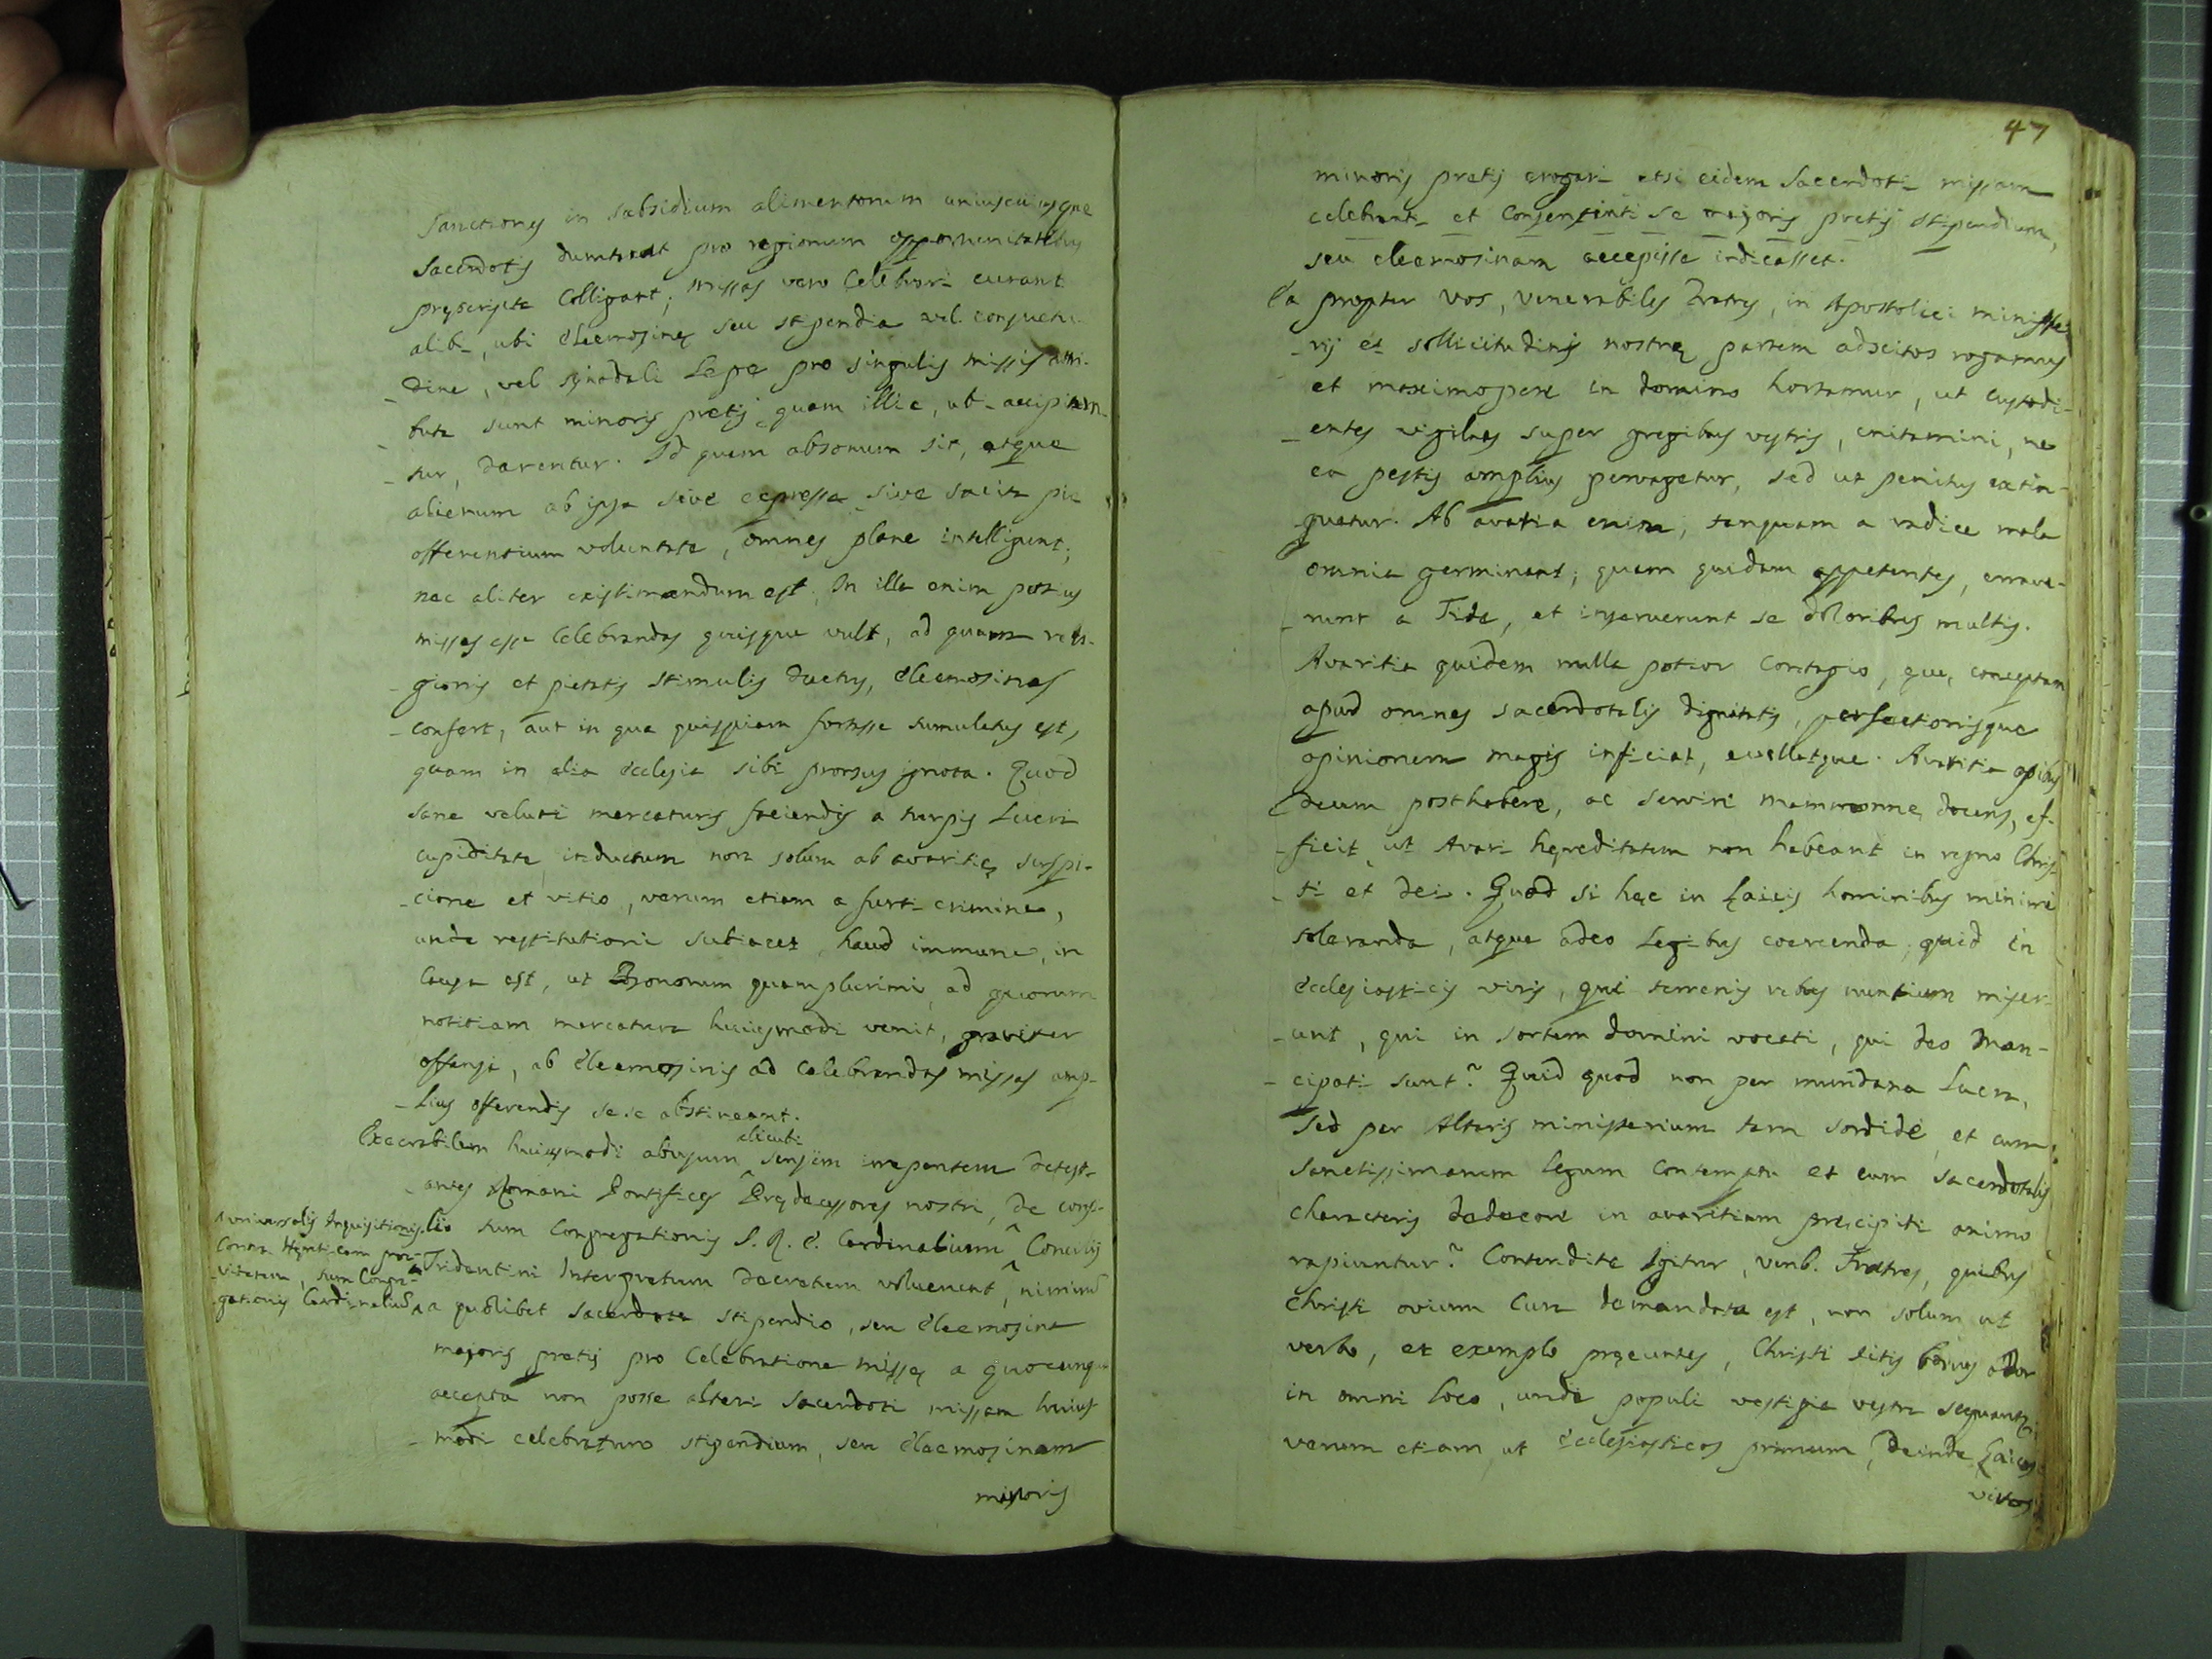 sanctiones in subsidium alimentorum uniuscuiusque
sacerdotis dumtaxat pro regionum opportunitatibus
pręscripta colligant; missas vero celebrari curant
alibi, ubi eleemosinę seu stipendia vel consuetu-
-dine, vel synodali Lege pro singulis missis attri-
-buta sunt minoris pretij quam illic, ubi accipiun-
-tur, darentur. Id quam absonum sit, atque
alienum ab ipsa sive expressa sive tacita pie
offerentium voluntate, omnes plane intelligunt;
nec aliter existimandum est. In illa enim potius
missas esse celebrandas quisque vult, ad quam reli-
-gionis et pietatis stimulis ductus, eleemosinas
-confert, aut in qua quispiam fortasse tumulatus est,
quam in alia ecclesia sibi prorsus ignota. Quod
sane veluti mercaturis faciendis a turpis Lucri
cupiditate inductum non solum ab avaritię suspi-
-cione et vitio, verum etiam a furti crimine,
unde restitutioni subiacet, haud immune, in
causa est, ut Bonorum quamplurimi, ad quorum
notitiam mercatura huiusmodi venit, graviter
offensi, ab eleemosinis ad celebrandas missas amp-
-lius offerendis sese abstineant.
Execrabilem huiusmodi abusum alicubi sensim irrepentem detest-
-antes Romani Pontifices Prędecessores nostri, de consi-
-lio tum Congregationis S. R. E. Cardinalium ^ Concilij
Tridentini Interpretum decretum voluerunt ^, nimirũ
a quolibet sacerdote stipendio, seu eleemosina
majoris pretij pro celebratione missę a quocunque
accepta non posse alteri sacerdoti missam huius-
-modi celebraturo stipendium, seu eleemosinam
minoris
universalis Inquisitionis
contra Hęreticam pra-
-vitatem, tum Congre-
-gationis Cardinaliũ
47
minoris pretij erogari etsi eidem sacerdoti missam
celebranti et consentienti se majoris pretij stipendium,
seu eleemosinam accepisse indicasset.
Ea propter vos, venerabiles Fratres, in Apostolici ministe-
-rij et sollicitudinis nostrę partem adscitos rogamus
et maximopere in domino hortamur, ut custodi-
-entes vigilias super gregibus vestris, enitamini, ne
ea pestis amplius pervagetur, sed ut penitus extin-
-guatur. Ab avaritia enim, tanquam a radice mala
omnia germinant; quam quidam appetentes, errave-
-runt a Fide, et inseruerunt se doloribus multis.
Avaritia quidem nulla potior contagio, quę, conceptam
apud omnes sacerdotalis dignitatis, perfectionisque
opinionem magis inficiat, evellatque. Avaritia opibus
Deum posthabere, ac servire mammonę docens, ef-
-ficit ut Avari hęreditatem non habeant in regno Chris-
-ti et Dei. Quod si hęc in Laicis hominibus minime
toleranda, atque adeo Legibus coercenda, quid in
ecclesiasticis viris, qui terrenis rebus nuntium miser-
-unt, qui in sortem domini vocati, qui deo man-
-cipati sunt? Quid quod non per mundana Lucra,
sed per Altaris ministerium tam sordide et cum
sanctissimarum legum contemptu et cum sacerdotalis
characteris dedecore in avaritiam pręcipiti animo
rapiuntur? Contendite Igitur, venb. Fratres, quibus
Christi ovium cura demandata est, non solum ut
verbo, et exemplo pręeuntes, Christi sitis bonus odor
in omni loco, unde populi vestigia vestra sequantur
verum etiam ut ecclesiasticos primum, deinde Laicos
viros